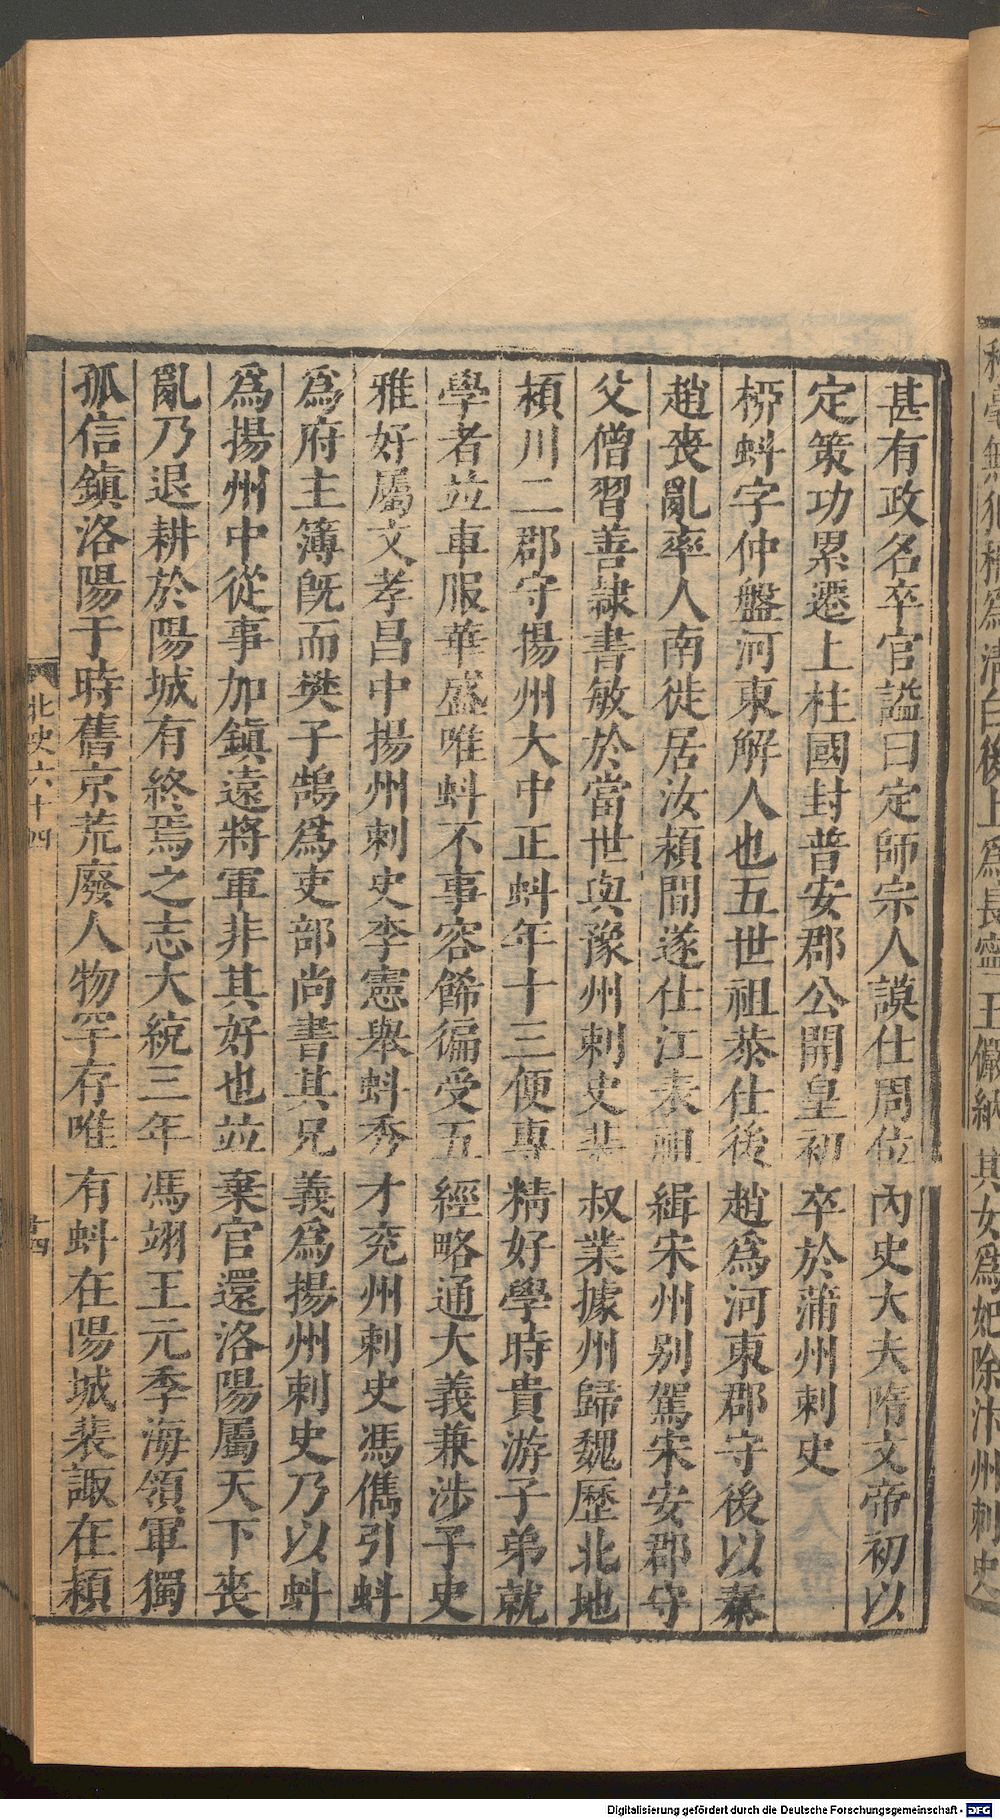 甚有政名卒官謚曰定師宗人謨仕周位內史大夫隋文帝初以
定策功累遷上柱國封普安郡公開皇初卒於蒲州刺史
桺蚪字仲盤河東解人也五世祖恭仕後趙爲河東郡守後以秦
趙喪亂率人南徙居汝潁間遂仕江表祖緝宋州別駕宋安郡守
父僧習善隷書敏於當世與豫州刺史裴叔業據州歸魏歷北地
潁川二郡守揚州大中正蚪年十三便專精好學時貴游子弟就
學者並車服華盛唯蚪不事容飾徧受五經略通大義兼涉子史
雅好屬文孝昌中揚州刺史李憲舉蚪秀才兖州刺史馮儁引蚪
爲府主簿旣而樊子鵠爲吏部尚書其兄義爲揚州刺史乃以蚪
爲揚州中從事加鎮遠將軍非其好也並棄官還洛陽屬天下喪
亂乃退耕於陽城有終焉之志大統三年馮翊王元季海領軍獨
孤信鎮洛陽于時舊京荒廢人物罕存唯有蚪在陽城裴諏在潁
北史六十四
十四
清白後上爲長寧王儼納其女爲妃除汴州刺史
Digitalisierung gefördert durch die Deutsche Forschungsgemeinschaft - DFG